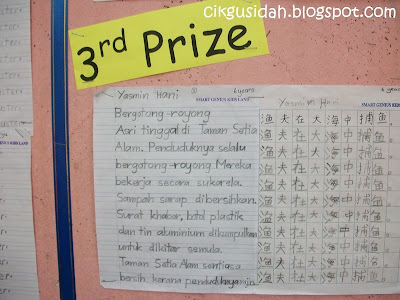 cikgusidah.blogspot.com
3rd Prize
Yasmin Hani
6 years
SMART GENIUS KIDS LAND
Bergotong-royong
Asri tinggal di Taman Setia
Alam. Penduduknya selalu
bergotong-royong. Mereka
bekerja secara sukarela.
Sampah sarap dibersihkan.
Surat khabar, botol plastik
dan tin aluminium dikumpulkan
untuk dikitar semula.
Taman Setia Alam sentiasa
bersih kerana penduduknya
Yasmin Hani
6 years
SMART GENIUS KIDS
渔夫在大海中捕鱼
渔夫在大海中捕鱼
渔夫在大海中捕鱼
渔夫在大海中捕鱼
渔夫在大海中捕鱼
渔夫在大海中捕鱼
渔夫在大海中捕鱼
渔夫在大海中捕鱼
渔夫在大海中捕鱼
渔夫在大海中捕鱼